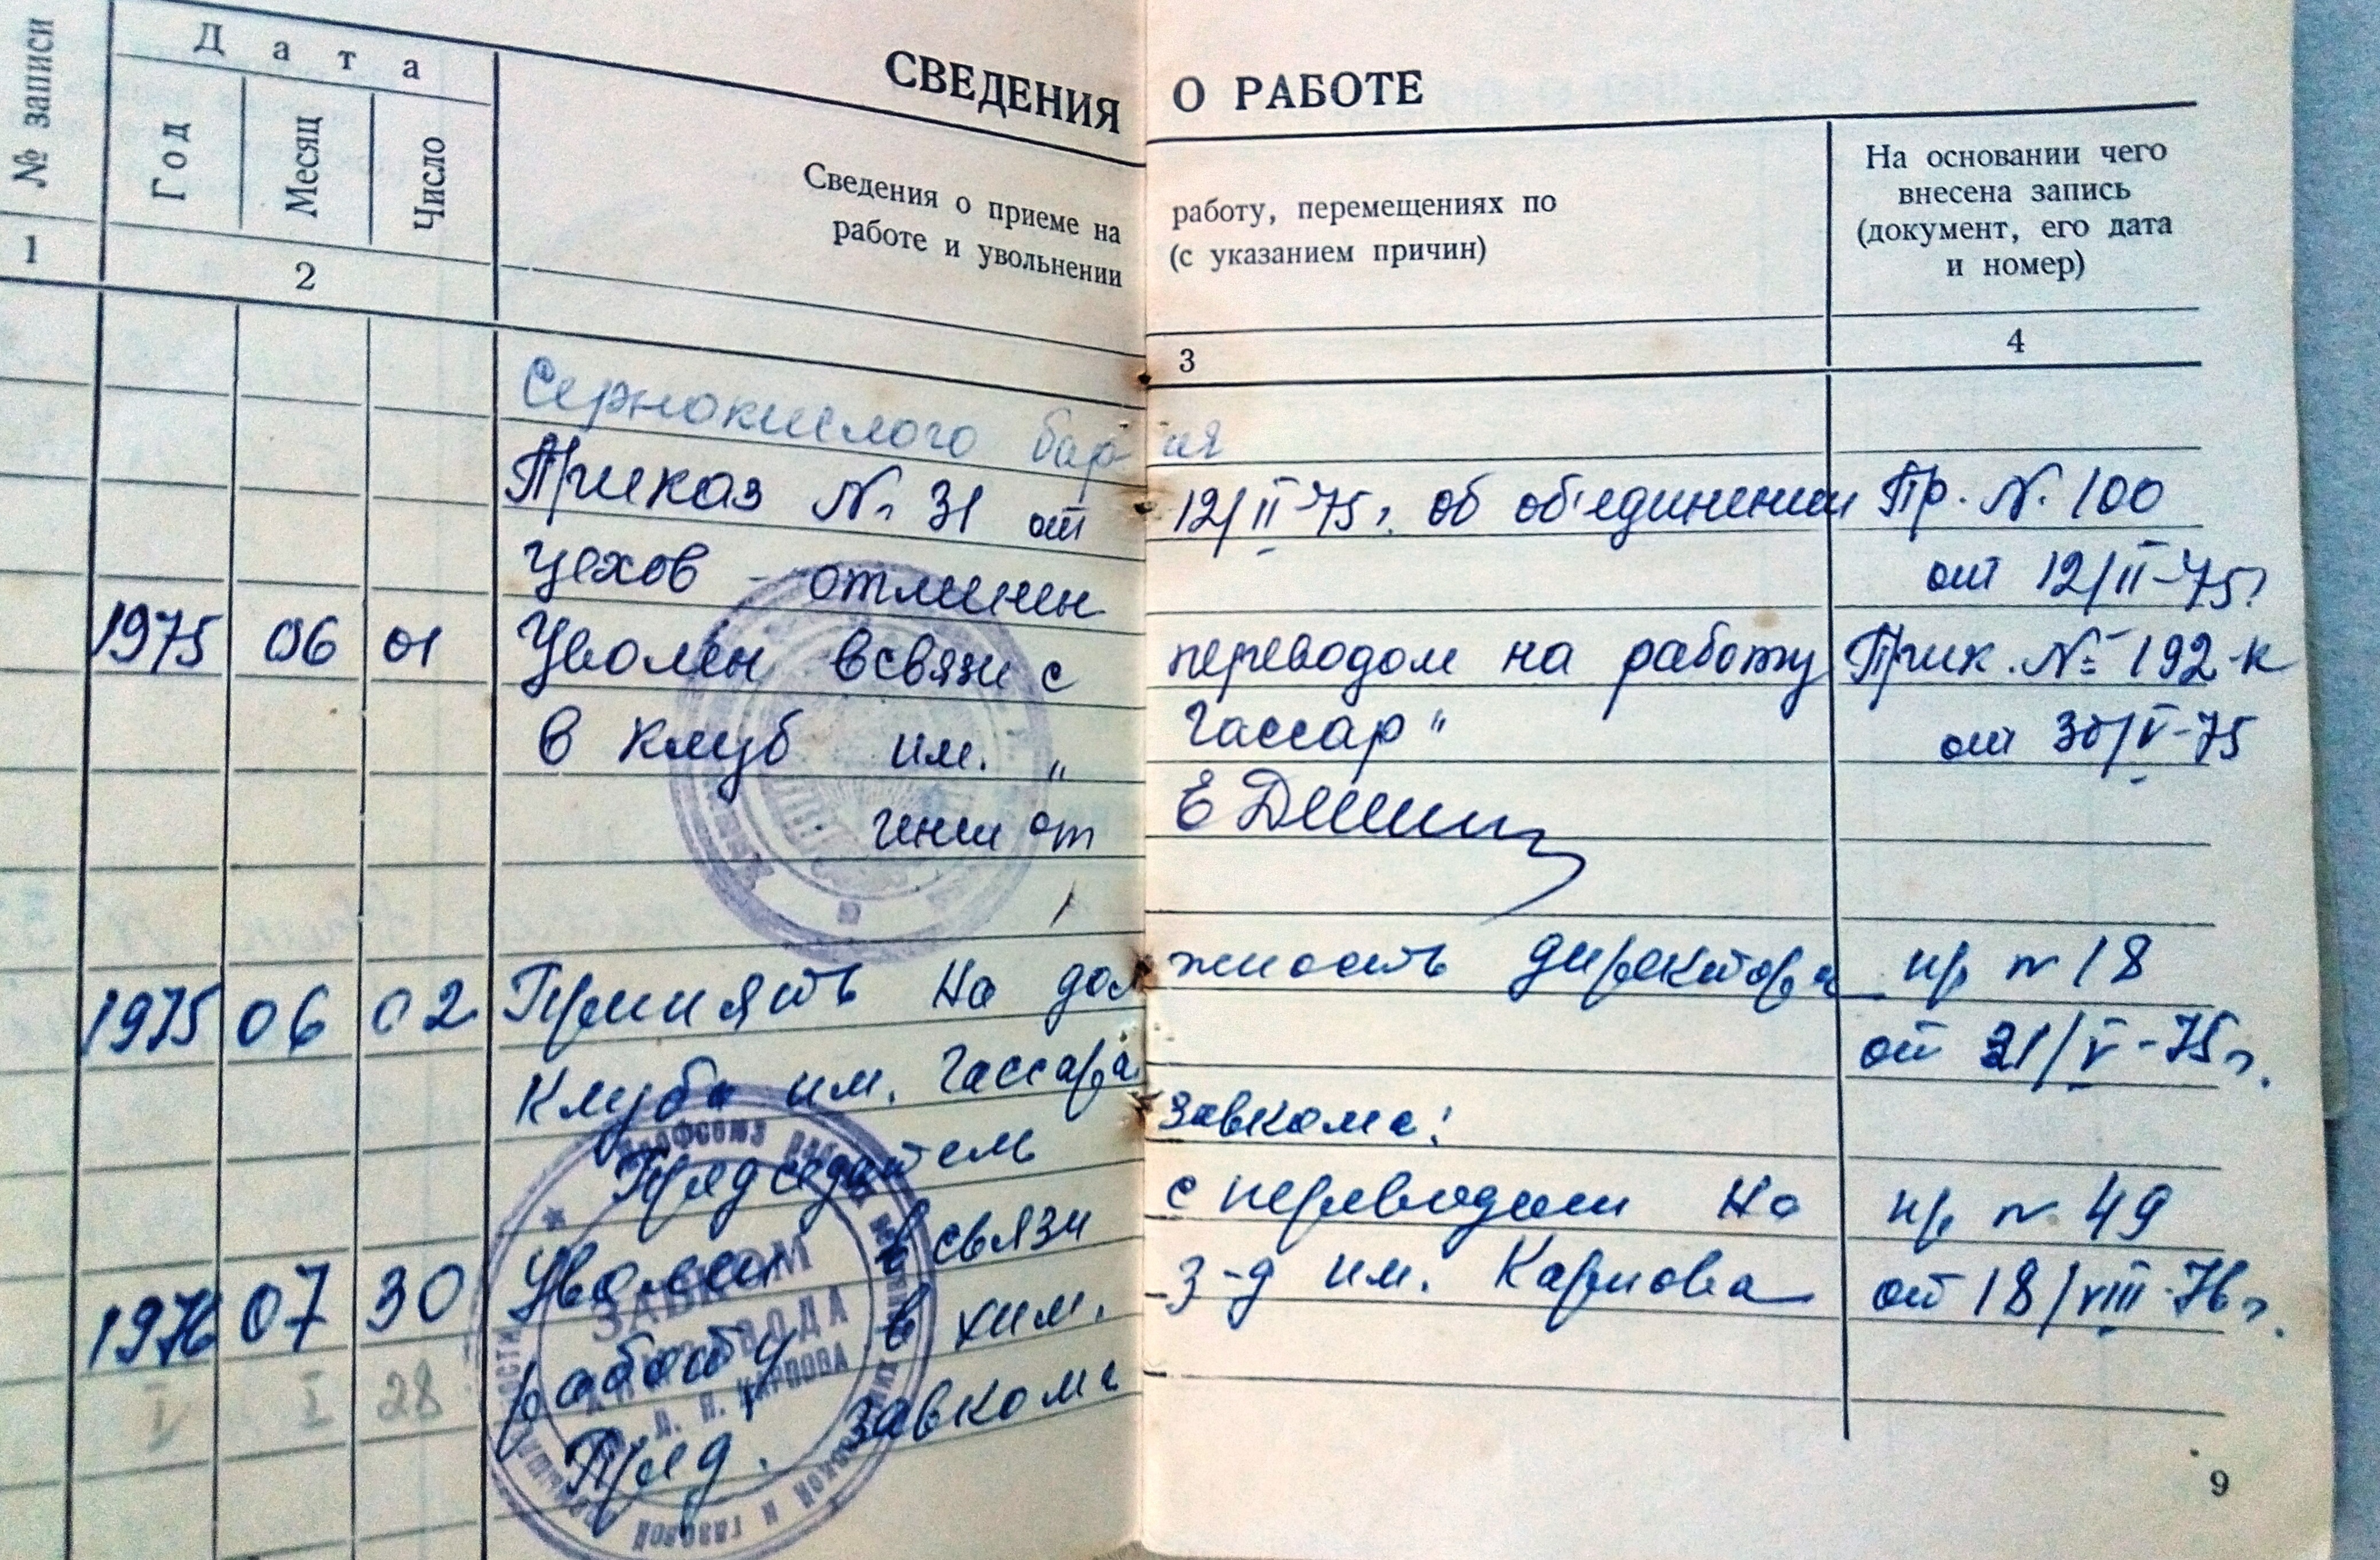 СВЕДЕНИЯ О РАБОТЕ
№ записи
Дата
Год
Месяц
Число
Сведения о приеме на работу, перемещениях по
работе и увольнении (с указанием причин)
На основании чего
внесена запись
(документ, его дата
и номер)
1 2 3 4
Сернокислого бария
Приказ № 31 от 12/II-75г. об об'единении Пр. № 100
цехов - отменен от 12/II-75г
1975 06 01 Уволен всвязи с переводом на работу Прик. № 192-к
в клуб им. „Гассар" от 30/V-75
1975 06 02 Принять на должность директора пр № 18
клуба им. Гассара от 21/V-75г.
Председатель завкома:
1976 07 30 Уволен в связи с переводом на пр № 49
работу в хим. з-д им. Карпова от 18/VIII-76г.
Пред. завкома
28
ЗАВКОМ
Л. Я. КАРПОВА
9